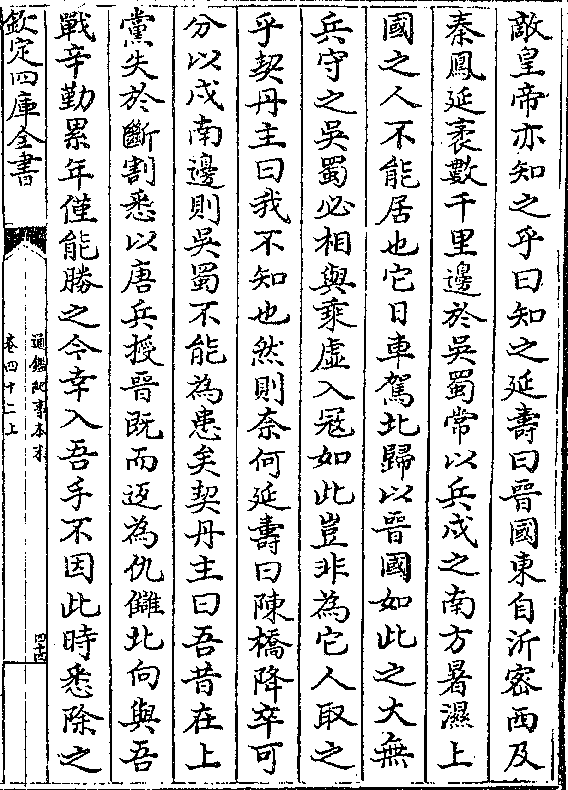 敵皇帝亦知之乎曰知之延壽曰晉國東自沂密西及
秦鳳延袤數千里邊於吳蜀常以兵戍之南方暑濕上
國之人不能居也它日車駕北歸以晉國如此之大無
兵守之吳蜀必相與乘虛入冦如此豈非為它人取之
乎契丹主曰我不知也然則奈何延壽曰陳橋降卒可
分以戍南邊則吳蜀不能為患矣契丹主曰吾昔在上
黨失於斷割悉以唐兵授晉既而返為仇讎北向與吾
戰辛勤累年僅能勝之今幸入吾手不因此時悉除之
欽定四庫全書
通鑑紀事本末
卷四十二上
四十四